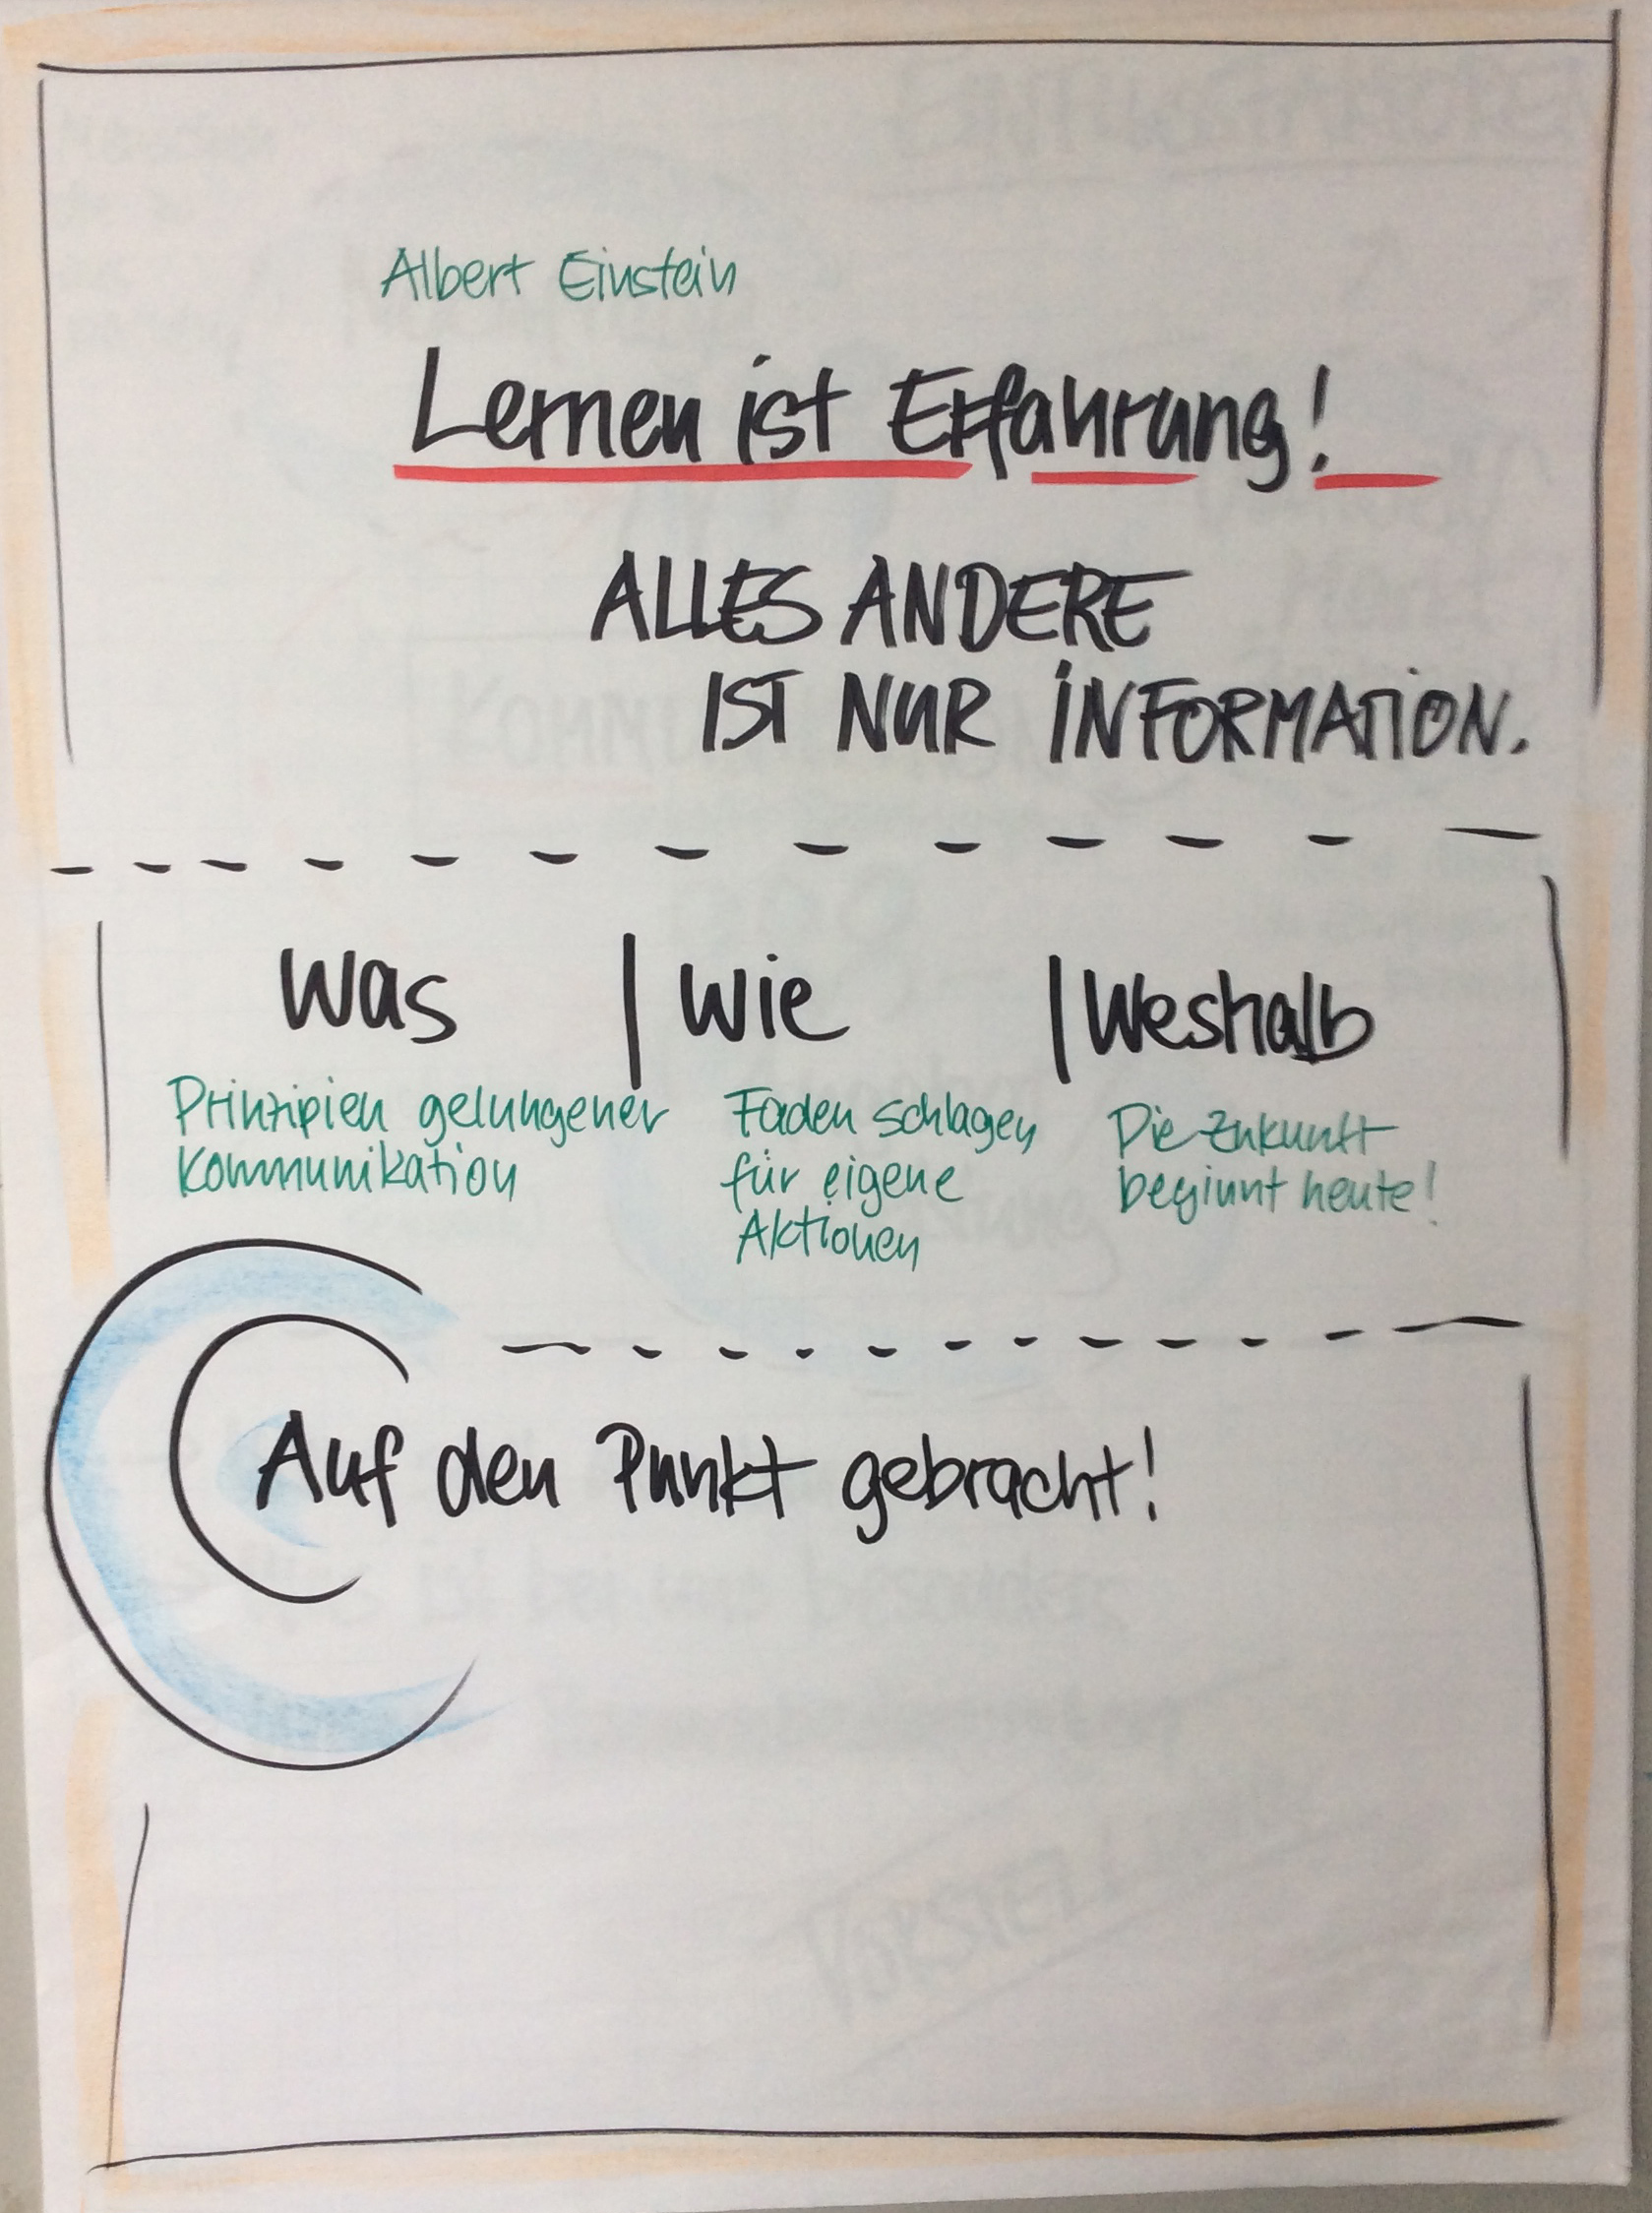 Albert Einstein
Lernen ist Erfahrung!
ALLES ANDERE
IST NUR INFORMATION.
Was | Wie | Weshalb
Prinzipien gelungener
Kommunikation
Faden schlagen
für eigene
Aktionen
Die Zukunft
beginnt heute!
Auf den Punkt gebracht!